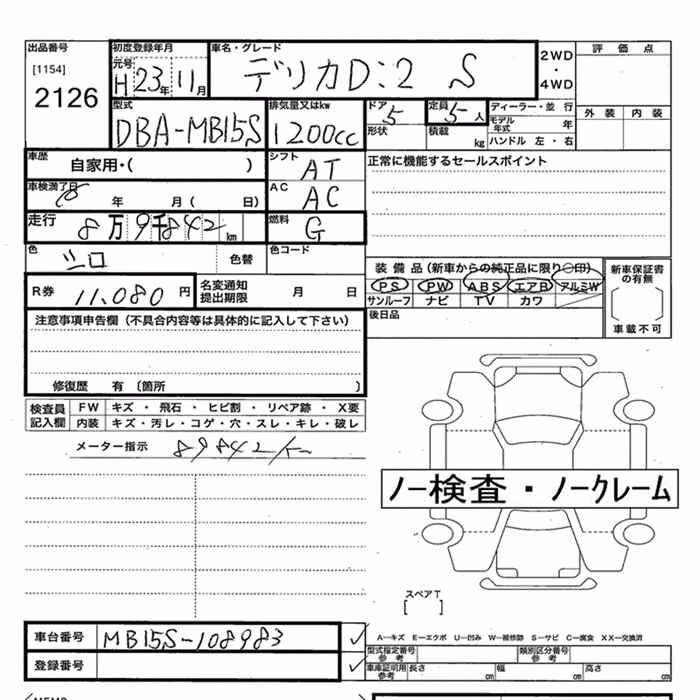 出品番号 初度登録年月 車名・グレード 2WD・4WD 評価点
[1154] 元号 H 23年 11月 デリカD:2 S
2126
型式 排気量又はkw ドア 5 定員 5人 ディーラー・並行 外装 内装
DBA-MB15S 1200cc 形状 積載 kg モデル年式 年
ハンドル 左・右
車歴 自家用・( ) シフト AT 正常に機能するセールスポイント
車検満了日 年 月( 日) AC AC
走行 8万9千842km 燃料 G
色 シロ 色替 色コード
装備品(新車からの純正品に限り○印) 新車保証書の有無
R券 11,080円 名変通知提出期限 月 日 PS PW ABS エアB アルミW
サンルーフ ナビ TV カワ
注意事項申告欄(不具合内容等は具体的に記入して下さい) 後日品 車載不可
修復歴 有 〔箇所 〕
検査員記入欄 FW キズ・飛石・ヒビ割・リペア跡・X要
内装 キズ・汚レ・コゲ・穴・スレ・キレ・破レ
メーター指示 89842
ノー検査・ノークレーム
スペアT
[ ]
車台番号 MB15S-108983 A―キズ E―エクボ U―凹み W―補修跡 S―サビ C―腐食 XX―交換済
型式指定番号 参考 類別区分番号 参考
登録番号 車庫証明用 参考 長さ cm 幅 cm 高さ cm
MEMO